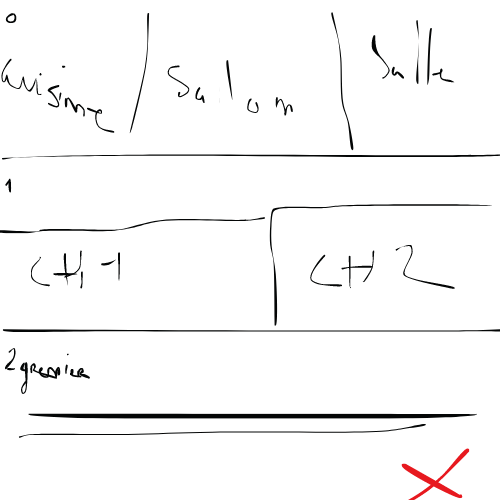 0
cuisine salon salle
1
CH 1 CH 2
2 grenier